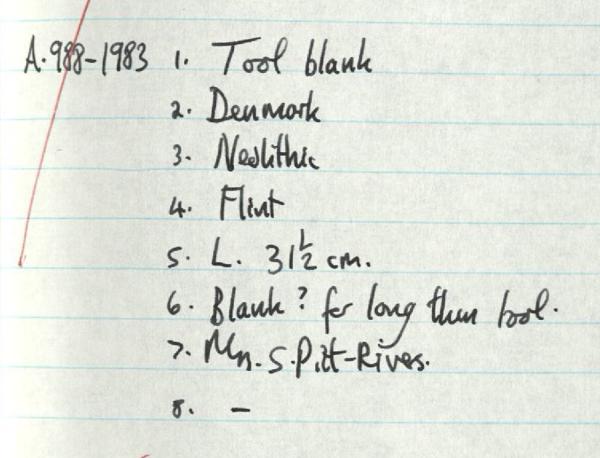 A.988-1983 1. Tool blank
2. Denmark
3. Neolithic
4. Flint
5. L. 31½ cm.
6. Blank? for long thin tool.
7. Mn. S. Pitt-Rivers.
8. –